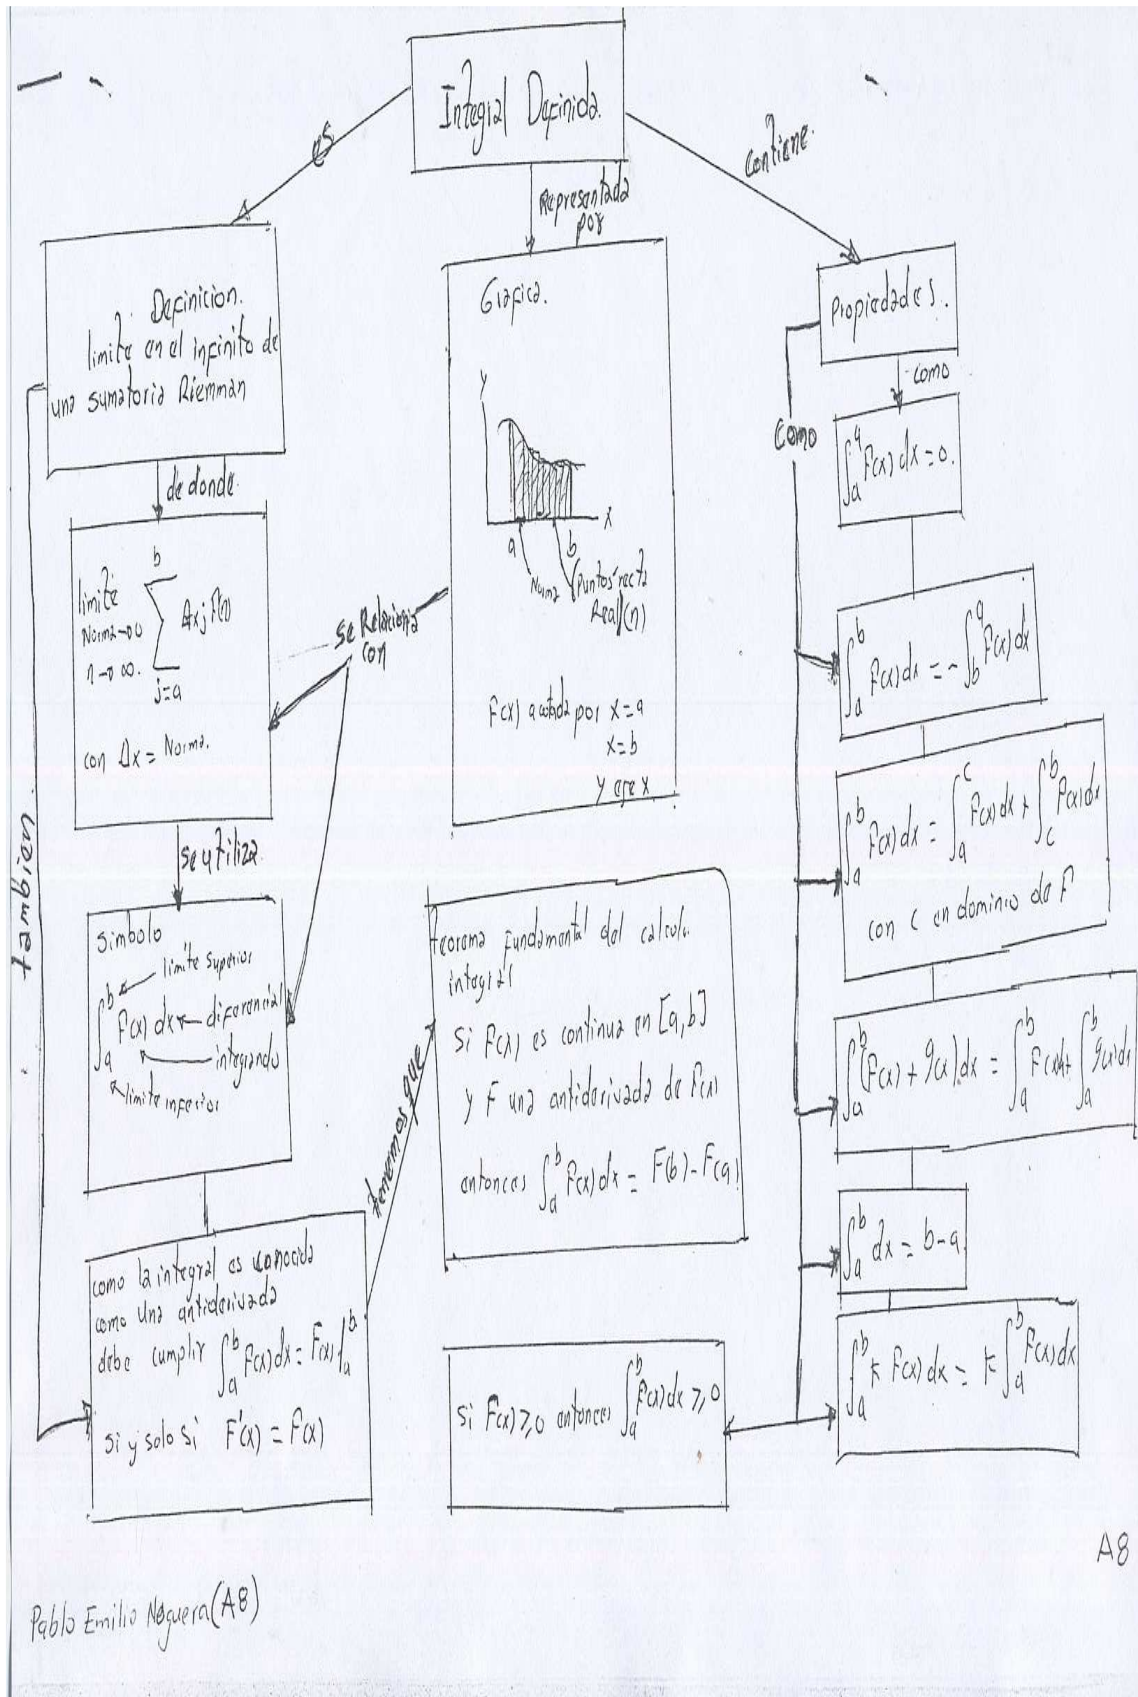 Integral Definida.
es
Representada
por
Contiene.
Definicion.
limite en el infinito de
una sumatoria Riemman
de donde
limite
Norma→0
n→∞.
b
∑ Δxj f(n)
j=a
con Δx = Norma.
se utiliza
Simbolo
limite superior
∫_a^b f(x) dx ← diferencial
integrando
limite inferior
como la integral es conocida
como una antiderivada
debe cumplir ∫_a^b f(x)dx = F(x)|_a^b
Si y solo si F'(x) = f(x)
tambien
Grafica.
Y
X
a b
Norma (Puntos recta
Real)(n)
F(x) acotada por x=a
x=b
y eje x
se Relaciona
con
tenemos que
teorema Fundamental del calculo
integral
Si F(x) es continua en [a,b]
y F una antiderivada de f(x)
entonces ∫_a^b f(x)dx = F(b)-F(a)
Si F(x)≥0 entonces ∫_a^b f(x)dx ≥0
Propiedades.
como
como
∫_a^a f(x) dx=0.
∫_a^b f(x)dx = -∫_b^a f(x)dx
∫_a^b f(x)dx = ∫_a^c f(x)dx + ∫_c^b f(x)dx
con c en dominio de F
∫_a^b (f(x) + g(x))dx = ∫_a^b f(x)dx + ∫_a^b g(x)dx
∫_a^b dx = b-a
∫_a^b k f(x)dx = k∫_a^b f(x)dx
A8
Pablo Emilio Noguera(A8)